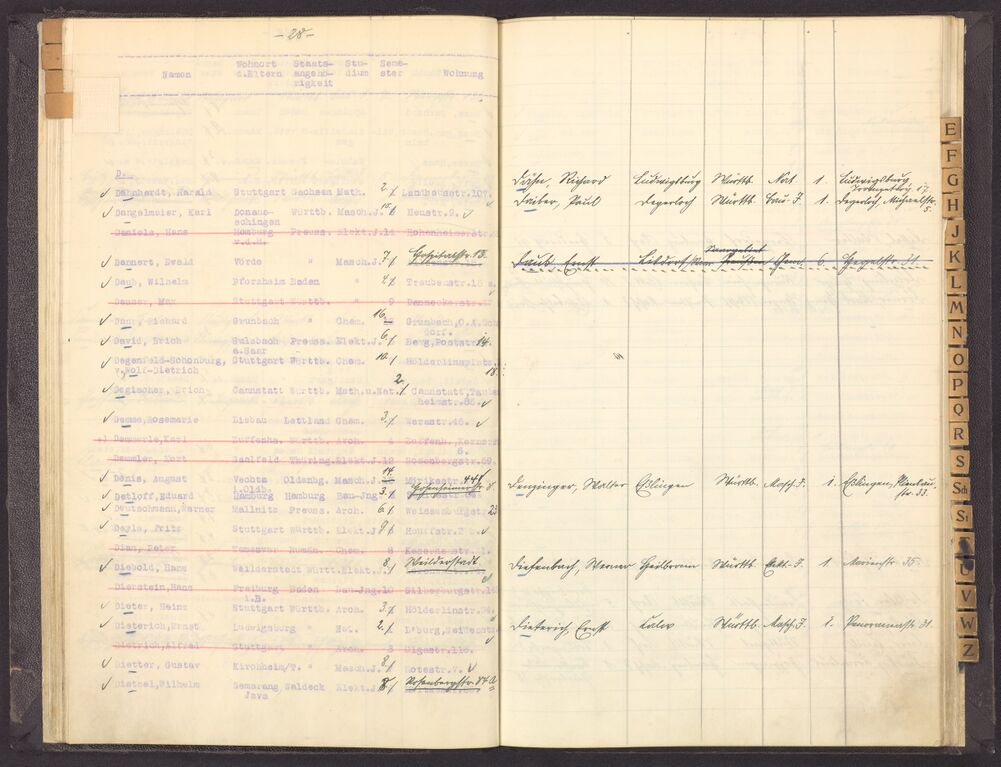 -28-
Namen Wohnort d.Eltern Staats-angehö-rigkeit Stu-dium Seme-ster Wohnung
D.
Dähnhardt, Harald Stuttgart Sachsen Math. 2 Landhausstr.107.
Dangelmaier, Karl Donaueschingen Württb. Masch.J. Neustr.9.
Daniels, Hans Homburg v.d.H. Preuss. Elekt.J.12
Dannert, Ewald Vörde " Masch.J. 7 Hospitalstr. 13.
Daub, Wilhelm Pforzheim Baden " Traubenstr.15
Stuttgart Württb. " 9 Danneckerstr.
Richard Grunbach " Chem. 16. Grunbach, O.A.Schorndorf.
David, Erich Sulzbach a.Saar Preuss. Elekt.J. 6. Berg, Poststr. 14.
Degenfeld-Schonburg, v.Wolf-Dietrich Stuttgart Württb. Chem. 10. Hölderlinplatz
Degischer, Erich Cannstatt Württb. Math.u.Nat. 2. Cannstatt, Taubenheimstr.85.
Demme, Rosemarie Libau Lettland Chem. 3. Werastr.46.
Demmerle, Karl Zuffenhs. Württb. Arch. Zuffenh.,
Demmler, Kurt Saalfeld Thüring. Elekt.J.12 Rosenbergstr.69.
Denis, August Vechta i.Oldb. Oldenbg. Masch.J. 14.
Detloff, Eduard Hamburg Hamburg Bau-Jng. 3.
Deutschmann, Werner Mallnitz Preuss. Arch. 6. Weissenburgstr. 23
Deyle, Fritz Stuttgart Württb. Elekt.J. 9 Hauffstr.
Dinu, Peter Rumän. Chem. 8
Diebold, Hans Weilderstadt Württ. Elekt.J. 8. Weilderstadt
Dierstein, Hans Freiburg i.B. Baden Bau-Jng.10 Silberburgstr.
Dieter, Heinz Stuttgart Württb. Arch. 3. Hölderlinstr.
Dieterich, Ernst Ludwigsburg " Nat. 2. L'burg,
Dietrich, Alfred Stuttgart " Arch. 3 Olgastr.110.
Dietter, Gustav Kirchheim/T. " Masch.J. 8. Rotestr.7.
Dietzel, Wilhelm Semarang Java Waldeck Elekt.J. 8. Rosenbergstr. 84 a
Dähn, Richard Ludwigsburg Württb. Nat. 1. Ludwigsburg 17.
Daiber, Paul Degerloch Württb. Bau-J. 1. Degerloch, 5.
Daub, Ernst Chem. 6 Hegelstr. 31
Denzinger, Walter Eßlingen Württb. Masch.J. 1. Eßlingen, str. 33.
Diefenbach, Werner Heilbronn Württb. Elekt.J. 1 Marienstr. 35.
Dieterich, Ernst Calw Württb. Masch.J. 1. Panoramastr. 31
E
F
G
H
J
K
L
M
N
O
P
Q
R
S
Sch
St
U
V
W
Z